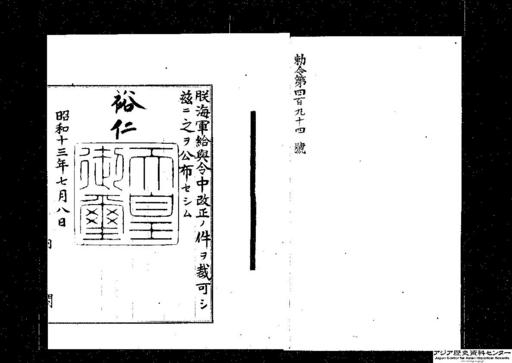 勅令第四百九十四號
朕海軍給與令中改正ノ件ヲ裁可シ
茲ニ之ヲ公布セシム
裕仁
天皇御璽
昭和十三年七月八日
内閣
アジア歴史資料センター
Japan Center for Asian Historical Records